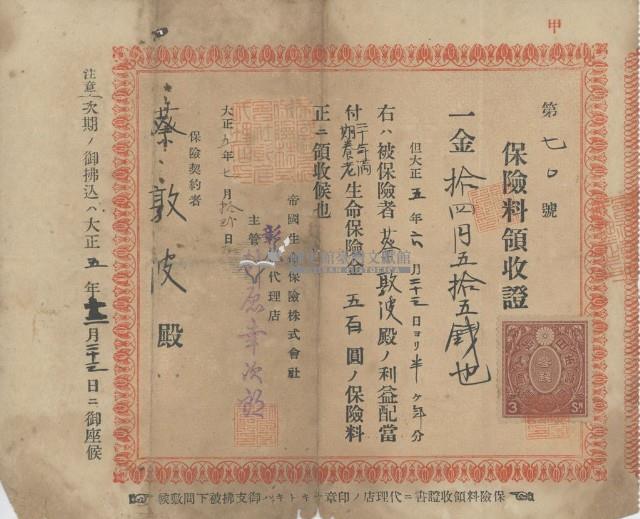 甲
保險料領收證
第七〇號
一金拾四円五拾五錢也
但大正五年六月二十三日ヨリ半ヶ年分
右ハ被保險者蔡敦波殿ノ利益配當
付二十年満期養老生命保險金五百圓ノ保險料
正ニ領收候也
大正五年七月拾
日
帝國生命保險株式會社
彰化代理店
主管
原幸次郎
保險契約者
蔡敦波殿
注意 次期ノ御拂込ハ大正五年十二月二十三日ニ御座候
保險料領收證書ニ代理店ノ印章ナキトキハ御支拂被下間敷候
3 SN
國史館臺灣文獻館
TAIWAN HISTORICA